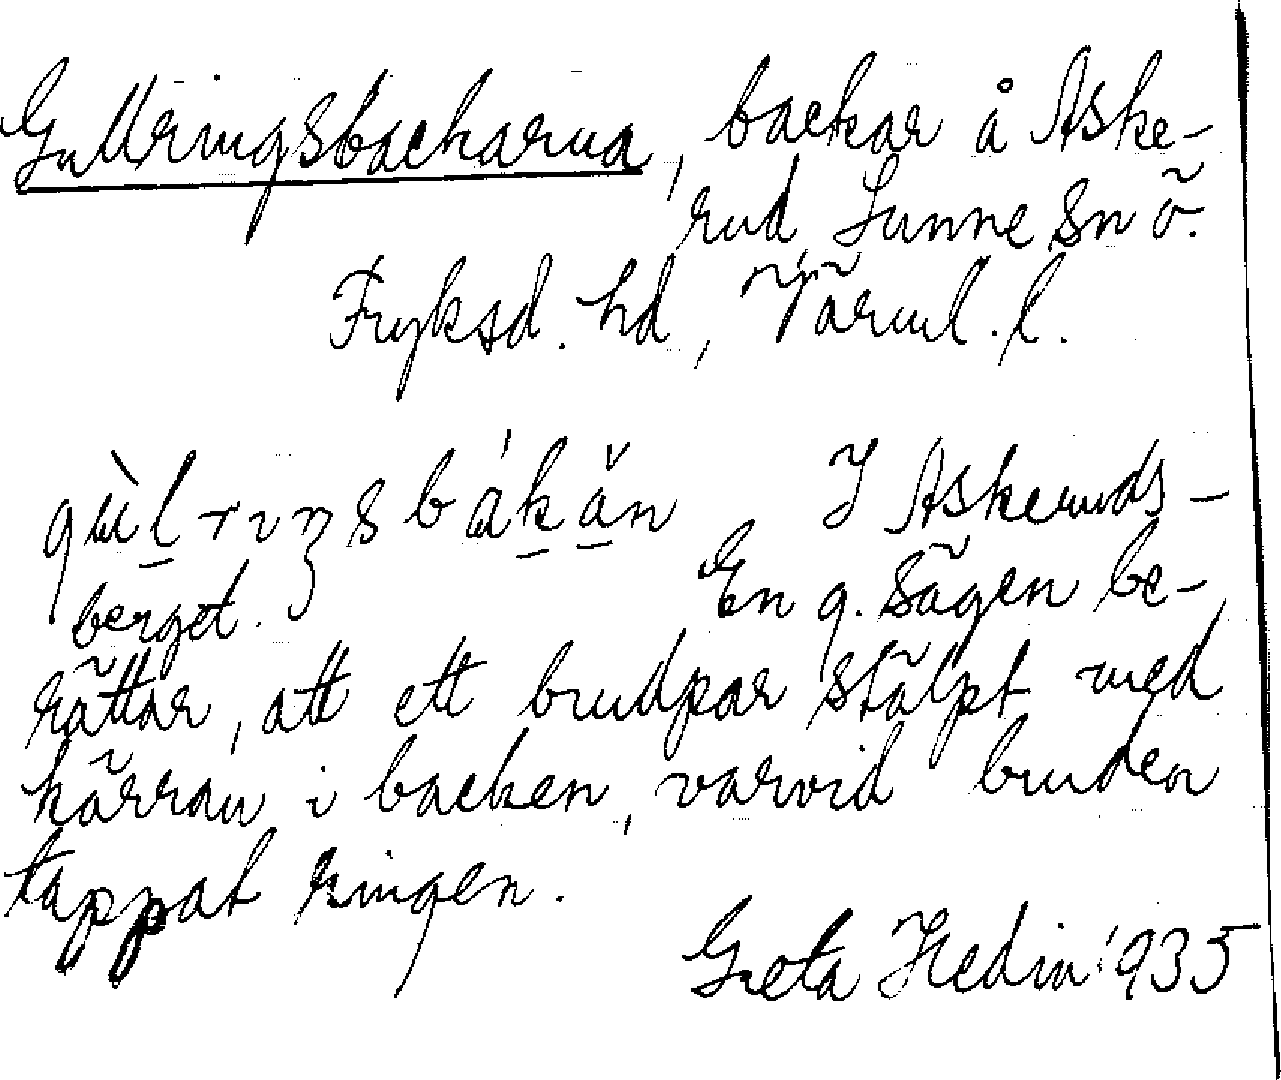 Gullringsbackarna, backar å Aske-
rud, Sunne sn ö.
Fryksd. hd, Värml. l.
I Askeruds-
berget. En g. sägen be-
rättar, att ett brudpar stälpt med
kärran i backen, varvid bruden
tappat ringen.
Greta Hedin 1935